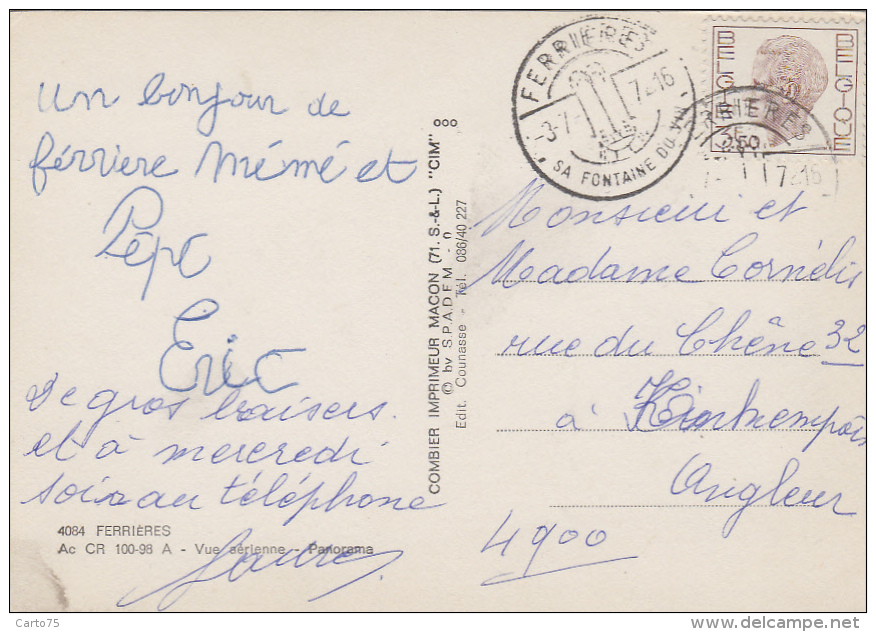 Un bonjour de
férriere Mémé et
Pépé
Eric
De gros baisers
et à mercredi
soir au téléphone
4084 FERRIÈRES
Ac CR 100-98 A - Vue aérienne - Panorama
COMBIER IMPRIMEUR MACON (71. S.-&-L.) "CIM"
© by S.P.A.D.E.M.
Edit. Counasse - Tél. 086/40 227
FERRIERES
3-7-
7 -16
SA FONTAINE DU
BELGIE
BELGIQUE
3.50
Monsieur et
Madame Cornélis
rue du Chêne 32
à Kinkempois
Angleur
4900
Carto75
www.delcampe.net